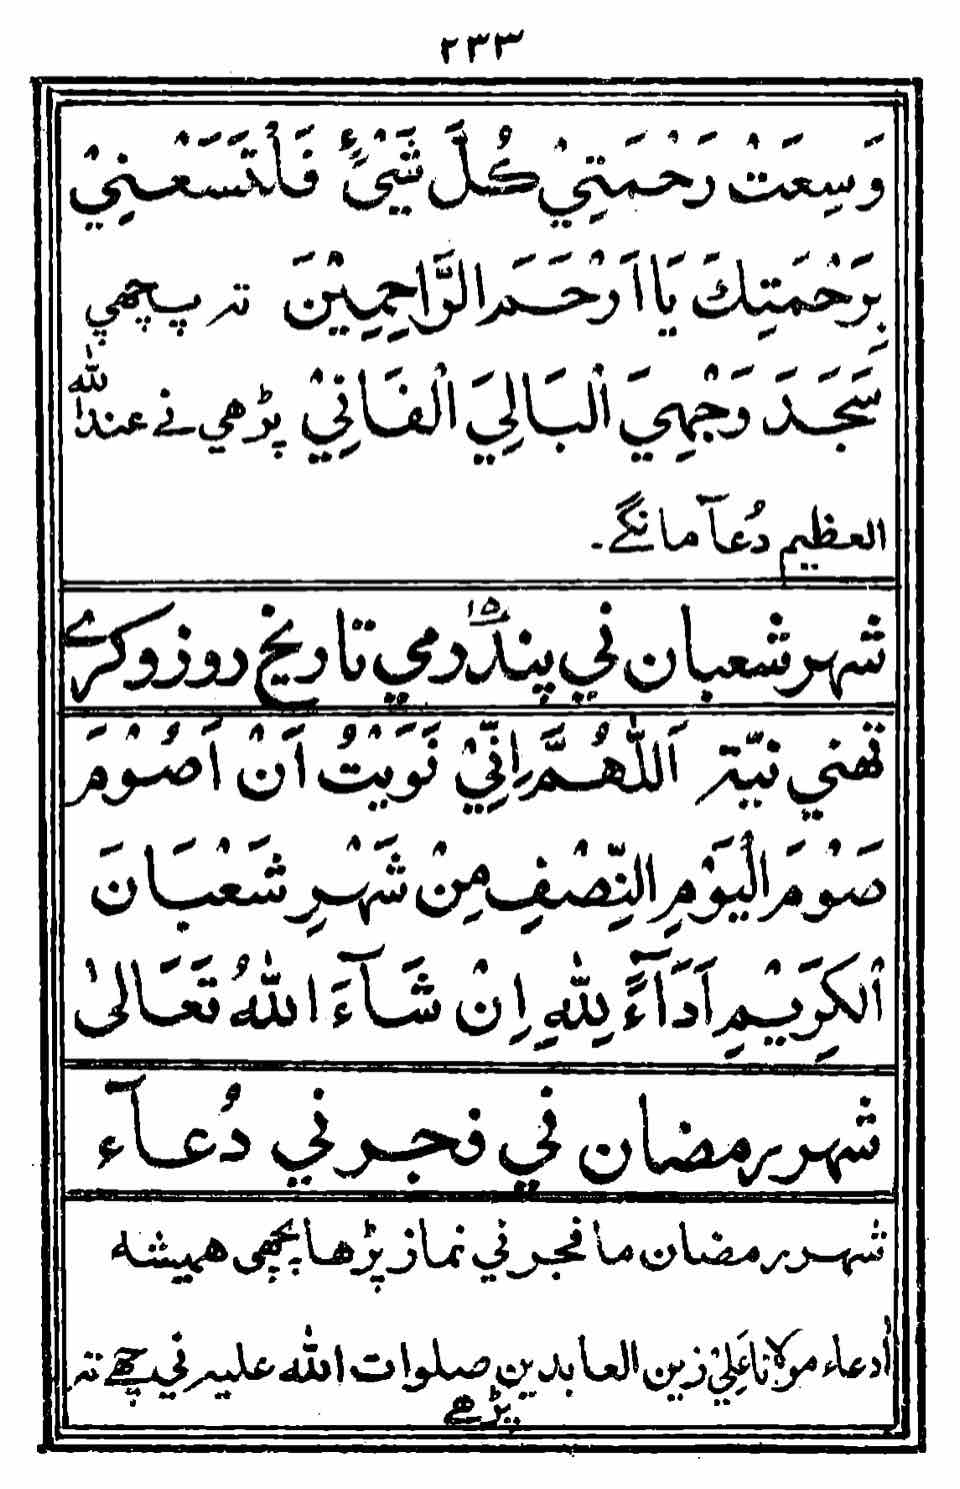 ۲۳۳
وَسِعَتْ رَحْمَتِيْ كُلَّ شَيْءٍ فَلْتَسَعْنِيْ
بِرَحْمَتِكَ يَا اَرْحَمَ الرَّاحِمِيْنَ تہ پچھي
سَجَدَ وَجْهِيَ الْبَالِيَ الْفَانِيْ پڑھي نے عند اللّٰه
العظيم دُعآ مانگے۔
شهر شعبان ني پندرمي ۱۵ تاريخ روزو كرے
تهني نيّة اَللّٰهُمَّ اِنِّيْ نَوَيْتُ اَنْ اَصُوْمَ
صَوْمَ الْيَوْمِ النِّصْفِ مِنْ شَهْرِ شَعْبَانَ
الْكَرِيْمِ اَدَآءً لِلّٰهِ اِنْ شَآءَ اللّٰهُ تَعَالىٰ
شهر رمضان ني فجر ني دُعآء
شهر رمضان ما فجر ني نماز پڑها پچھي هميشه
اُدعاء مولانا عَلِيْ زين العابدين صلوات اللّٰه عليه ني چھے تہ
پڑھے